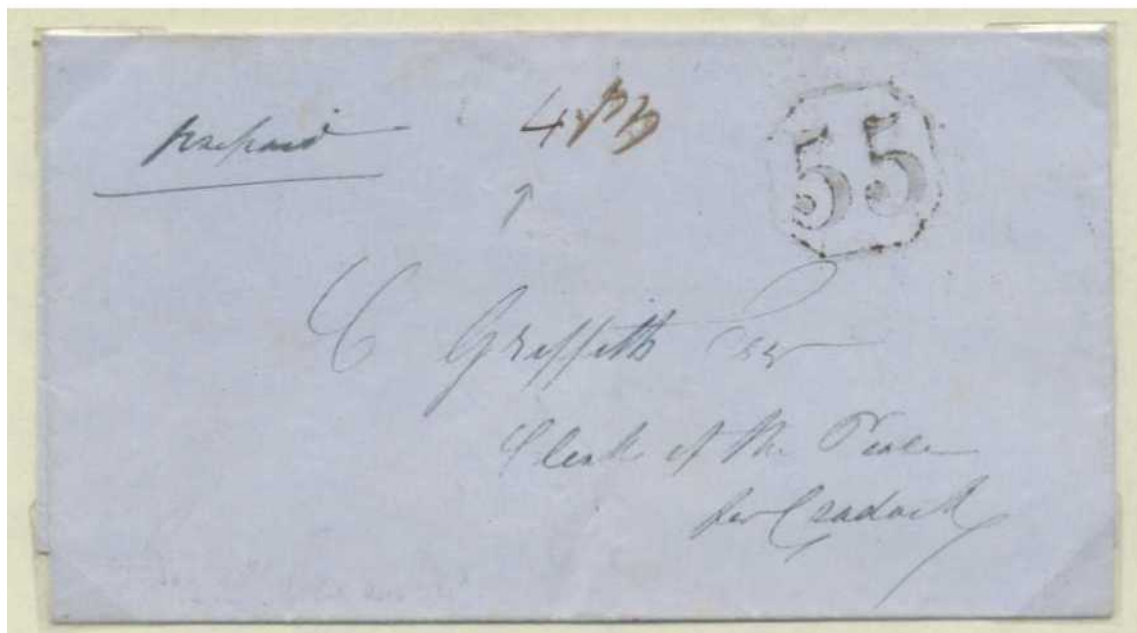 prepaid
4
55
C Griffith Esq
Clerk of the Peace
for Cradock